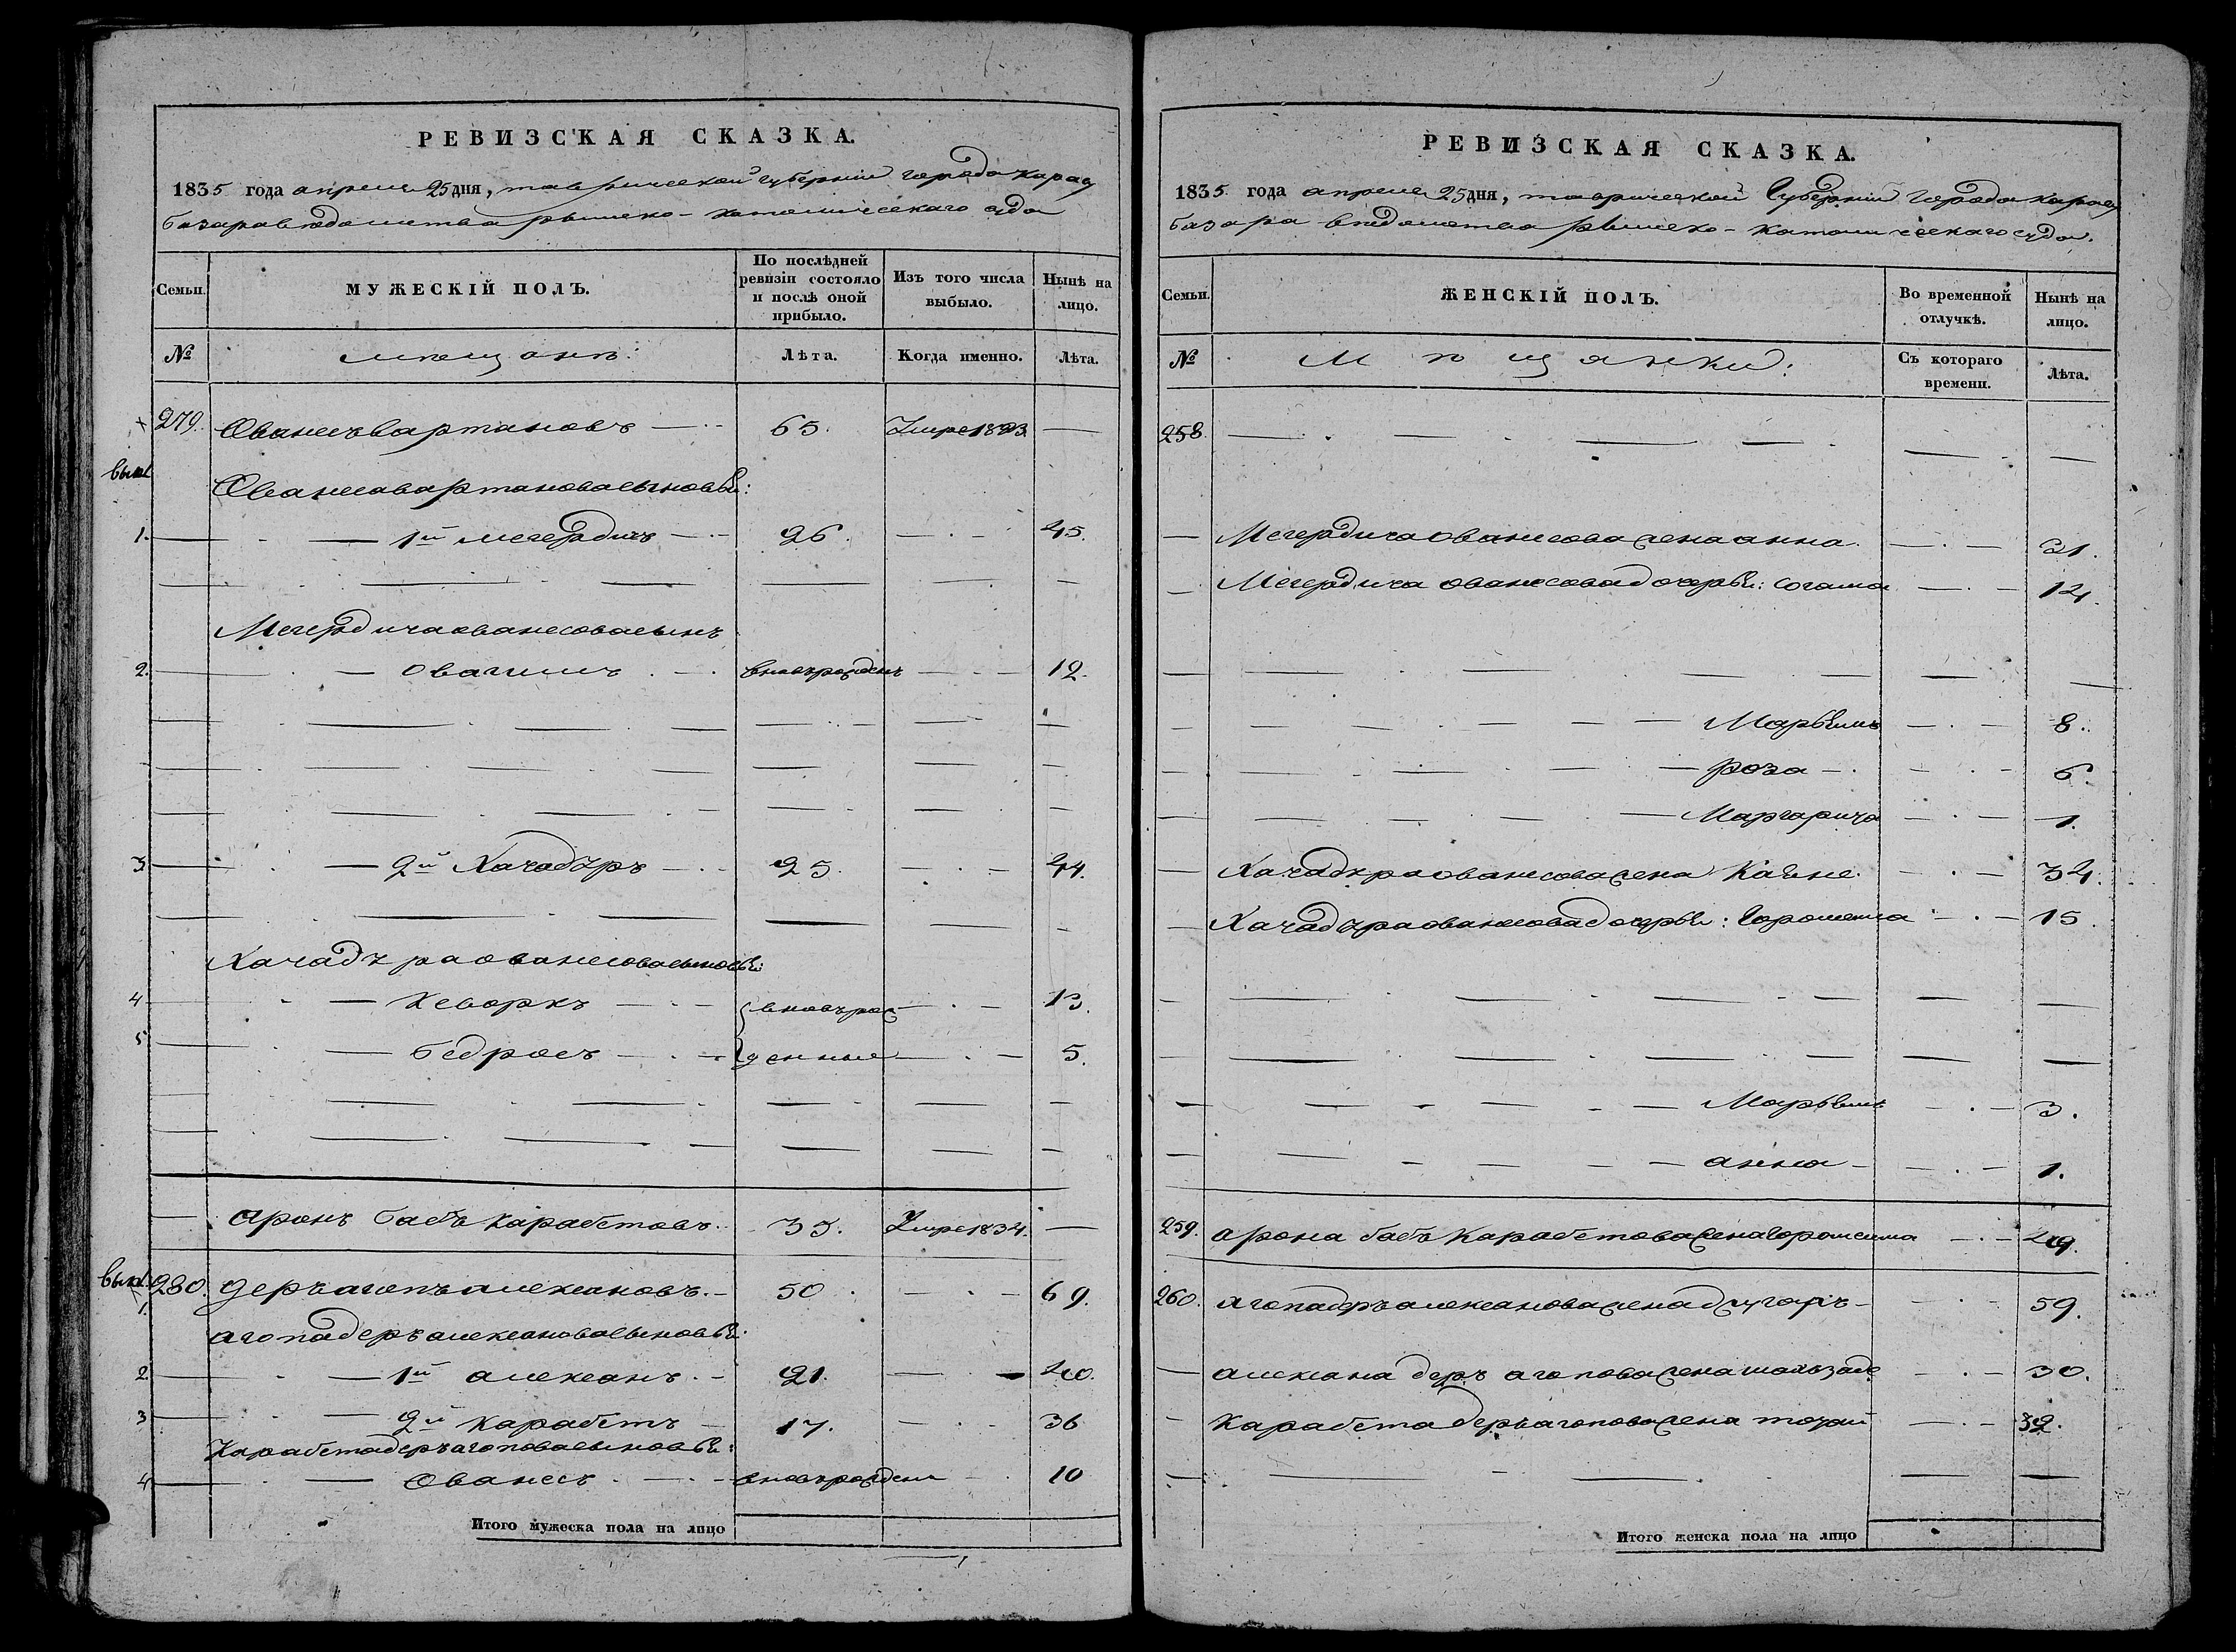 РЕВИЗСКАЯ СКАЗКА.
1835 года апреля 25 дня, таврической губернии города карасу
базара ведомства рымско-католическаго суда
Семьи. МУЖЕСКІЙ ПОЛЪ. По послѣдней ревизіи состояло и послѣ оной прибыло. Изъ того числа выбыло. Нынѣ на лицо.
№ мещане: Лѣта. Когда именно. Лѣта.
279. Ованесъ Вартановъ 65. Умре 1823
выкл
Ованеса вартанова сыновьи:
1. 1й мегердичъ 26. 45.
Мегердича ованесова сынъ
2. Овагимъ вновь рожденъ 12.
3 2й Хачадуръ 25. 44.
Хачадура ованесова сыновьи:
4 Кеворкъ вновь рож 13.
5 бедросъ денные 5.
аронъ бабъ карабетовъ 35. Умре 1834.
выкл 280. деръ агопъ алексановъ 50 69.
1.
агопа деръ алексанова сыновьи:
2 1й алексанъ 21. 40.
3 2й карабетъ 17. 36
Карабета деръ агопова сыновьи:
4 Ованесъ вновь рожденъ 10
Итого мужеска пола на лицо
РЕВИЗСКАЯ СКАЗКА.
1835 года апреля 25 дня, таврической Губернии Города Карасу
базара ведомства рымско-католическаго суда.
Семьи. ЖЕНСКІЙ ПОЛЪ. Во временной отлучкѣ. Нынѣ на лицо.
№ Мещянки: Съ котораго времени. Лѣта.
258.
Мегердича ованесова жена анна 31.
Мегердича ованесова дочерьи: 14.
Марьемъ 8.
роза 6.
Маргарита 1.
Хачадура ованесова жена 34.
Хачадура ованесова дочерьи: 15.
Марьемъ 3.
анна 1.
259. арона бабъ Карабетова жена 49.
260. агопа деръ алексанова жена 59.
алексана деръ агопова жена 30.
Карабета деръ агопова жена 32.
Итого женска пола на лицо